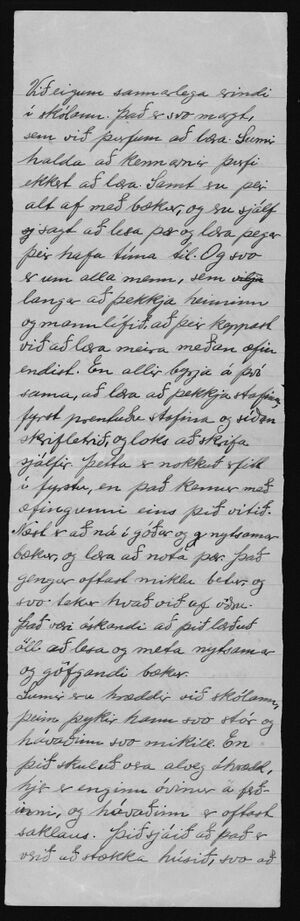 Við eigum sannarlega erindi
í skólann. Það er svo margt,
sem við þurfum að læra. Sumir
halda að kennarnir þurfi
ekkert að læra. Samt eru þeir
alt af með bækur, og eru sjálf
sagt að lesa þær og læra þegar
þeir hafa tíma til. Og svo
er um alla menn, sem
langar að þekkja heiminn
og mannlífið, að þeir keppast
við að læra meira meðan æfin
endist. En allir byrja á því
sama, að læra að þekkja stafina,
fyrst prentuðu stafina og síðan
skrifletrið, og loks að skrifa
sjálfir. Þetta er nokkuð erfitt
í fyrstu, en það kemur með
æfingunni eins þið vitið.
Næst er að ná í góðar og nytsamar
bækur, og læra að nota þær. Það
gengur oftast miklu betur og
svo tekur hvað við af öðru.
Það væri óskandi að þið lærðuð
öll að lesa og meta nytsamar
og göfgandi bækur.
Sumir eru hræddir við skólann,
þeim þykir hann svo stór og
hávaðinn svo mikill. En
þið skuluð vera alveg óhrædd,
hjer er enginn óvinur á ferð-
inni, og hávaðinn er oftast
saklaus. Þið sjáið að það er
verið að stækka húsið, svo að